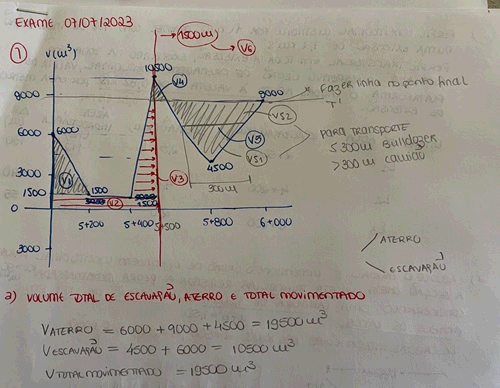 EXAME 07/07/2023
1500m³
V6
1
V(m³)
10500
V4
9000
9000
Fazer linha no ponto final
"T"
VS2
6000
6000
V5
PARA TRANSPORTE
VS1
≤ 300m Bulldozer
>300m camião
4500
3000
V1
V3
300m
1500
1500
3000
V2
1500
0
5+200
5+400
5+500
5+800
6+000
3000
ATERRO
ESCAVAÇÃO
a) VOLUME TOTAL DE ESCAVAÇÃO, ATERRO E TOTAL MOVIMENTADO
VATERRO = 6000 + 9000 + 4500 = 19500 m³
VESCAVAÇÃO = 4500 + 6000 = 10500 m³
VTOTAL MOVIMENTADO = 19500 m³